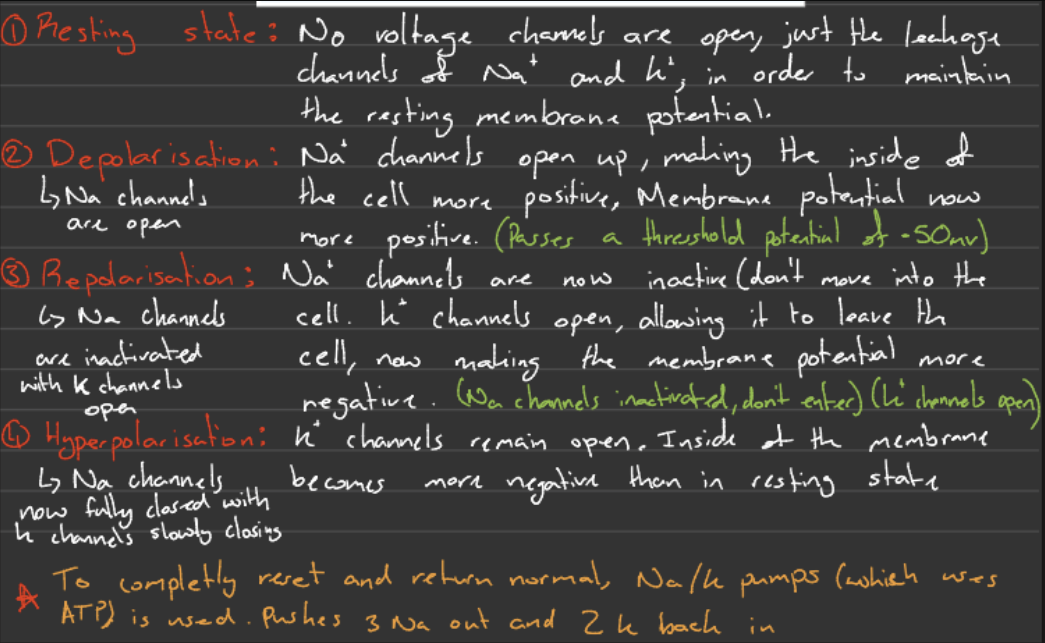 ① Resting state: No voltage channels are open, just the leakage
channels of Na⁺ and k⁺, in order to maintain
the resting membrane potential.
② Depolarisation: Na⁺ channels open up, making the inside of
↳ Na channels the cell more positive, Membrane potential now
are open more positive. (Passes a threshold potential of -50mv)
③ Repolarisation: Na⁺ channels are now inactive (don't move into the
↳ Na channels cell. k⁺ channels open, allowing it to leave th
are inactivated cell, now making the membrane potential more
with k channels
open negative. (Na channels inactivated, don't enter) (k⁺ channels open)
④ Hyperpolarisation: k⁺ channels remain open. Inside of the membrane
↳ Na channels becomes more negative than in resting state
now fully closed with
k channels slowly closing
To completly reset and return normal, Na/k pumps (which uses
ATP) is used. Pushes 3 Na out and 2 k back in